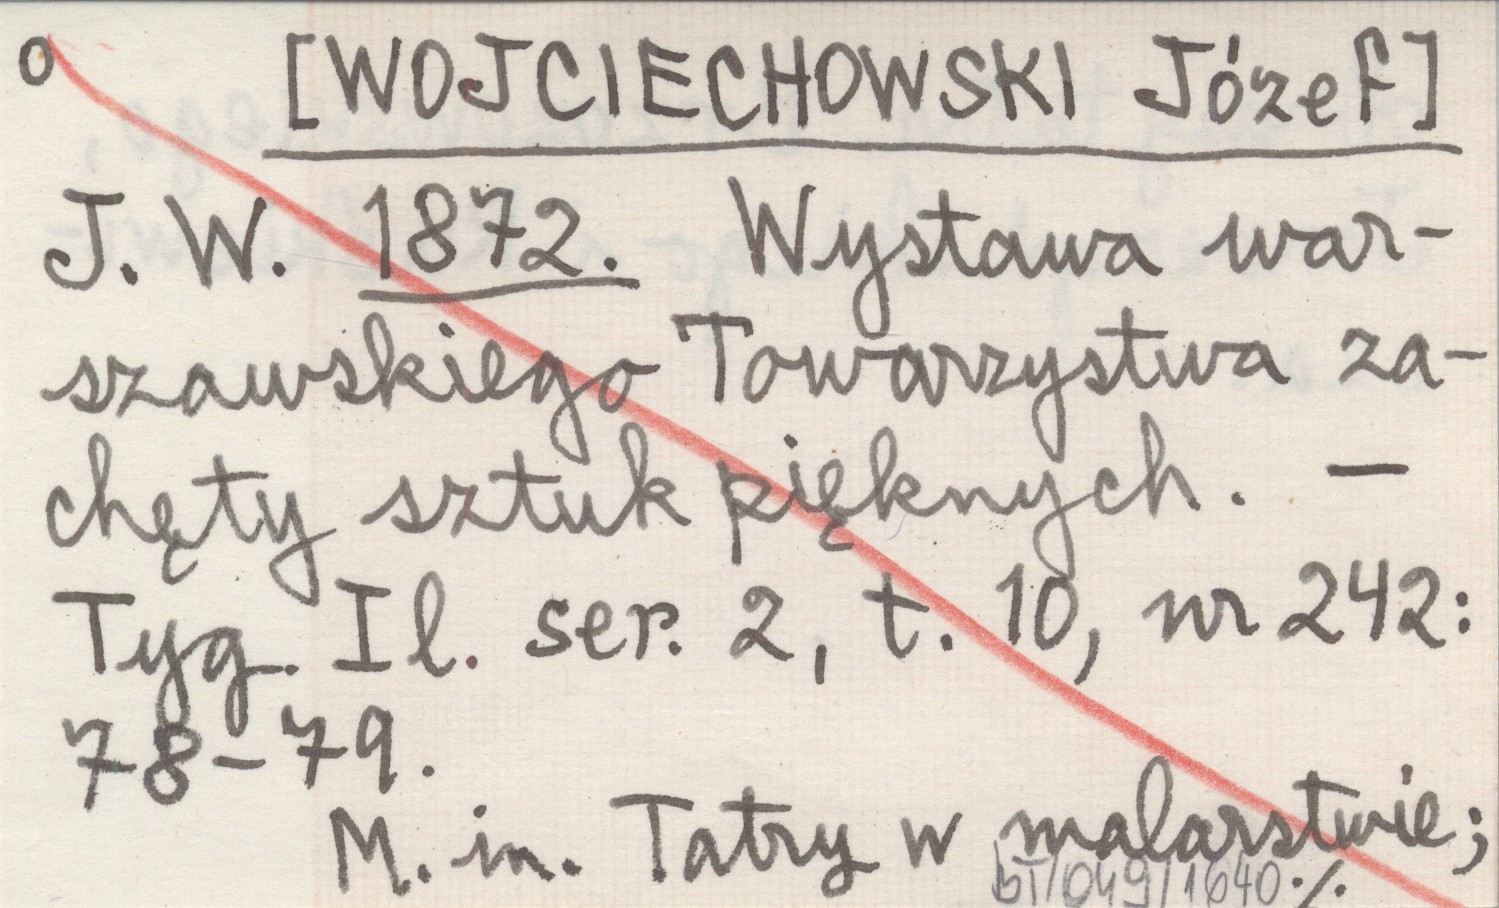 o [WOJCIECHOWSKI Józef]
J. W. 1872. Wystawa war-
szawskiego Towarzystwa za-
chęty sztuk pięknych. —
Tyg. Il. ser. 2, t. 10, nr 242:
78-79.
M. in. Tatry w malarstwie;
bT/049/1640 ./.